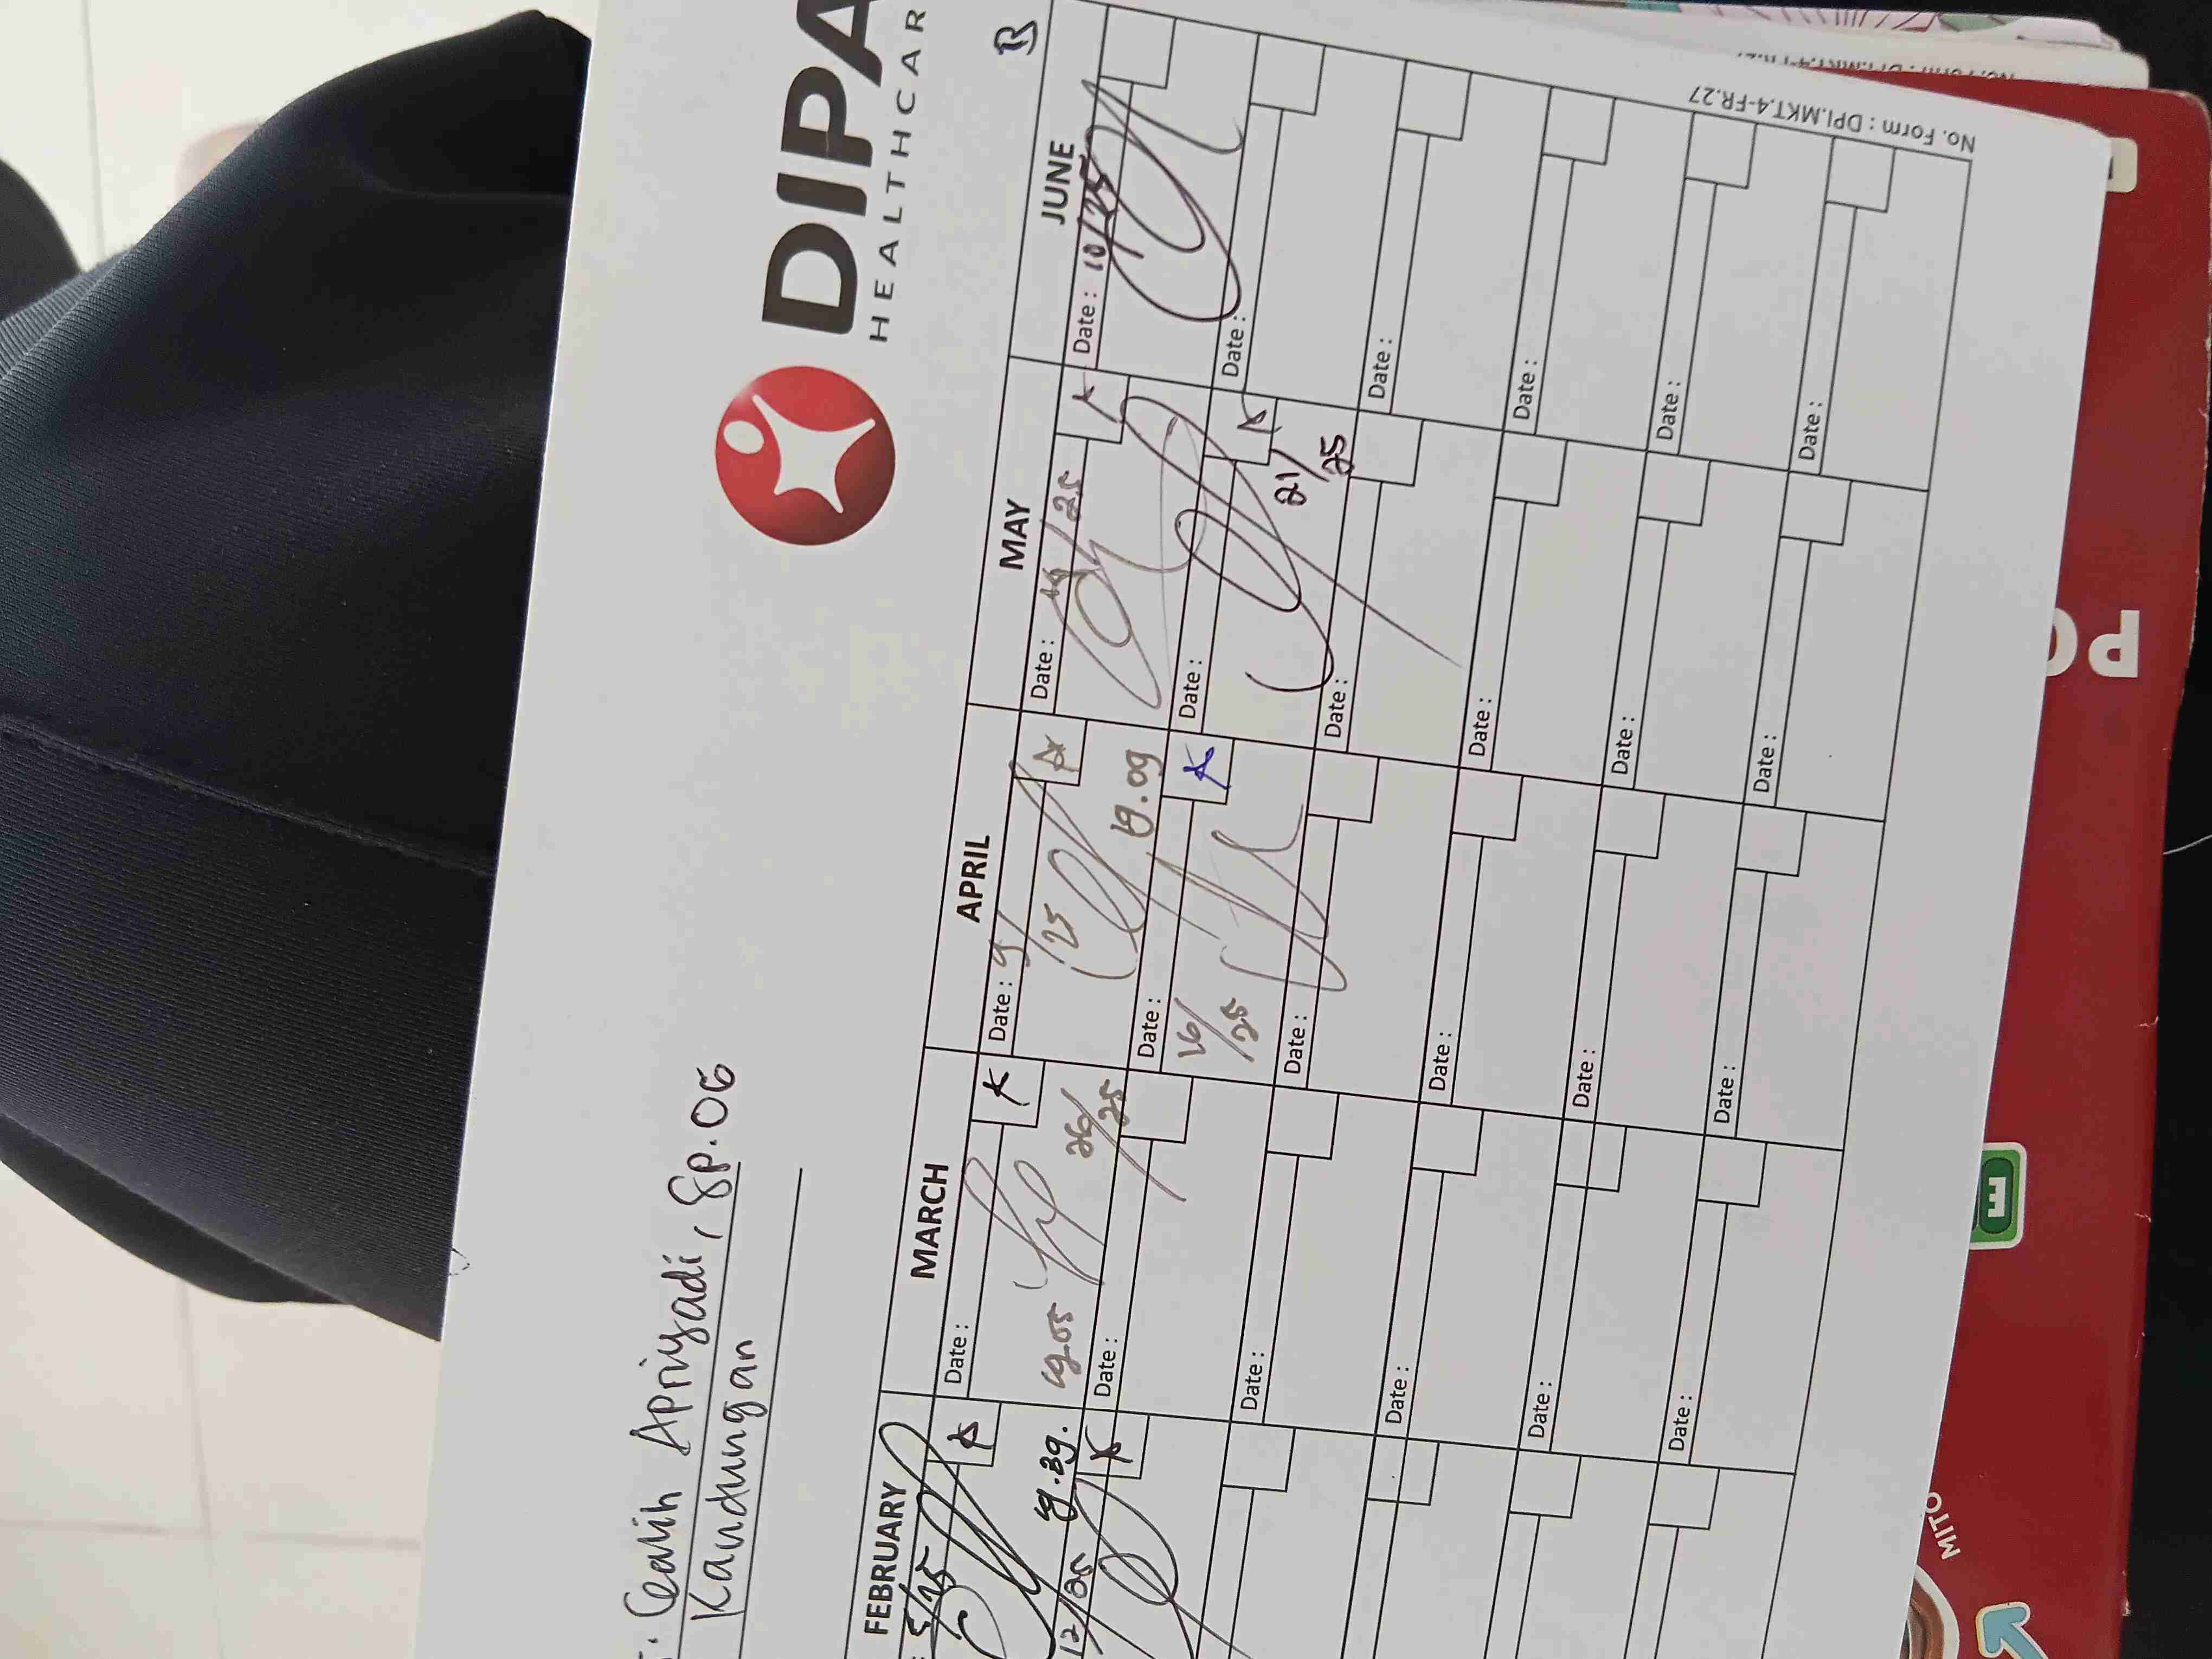 DIPA
HEALTHCAR
Apriyadi, Sp.OG
Kandungan
B
FEBRUARY MARCH APRIL MAY JUNE
5/25 Date : Date : 9/25 Date : /25 Date : 10/25
26/25
19.05 19.09
19.39.
12/25 Date : Date : Date : Date :
16/25 21/25
Date : Date : Date : Date :
Date : Date : Date : Date :
Date : Date : Date : Date :
Date : Date : Date : Date :
No. Form : DPI.MKT.4-FR.27
MITO